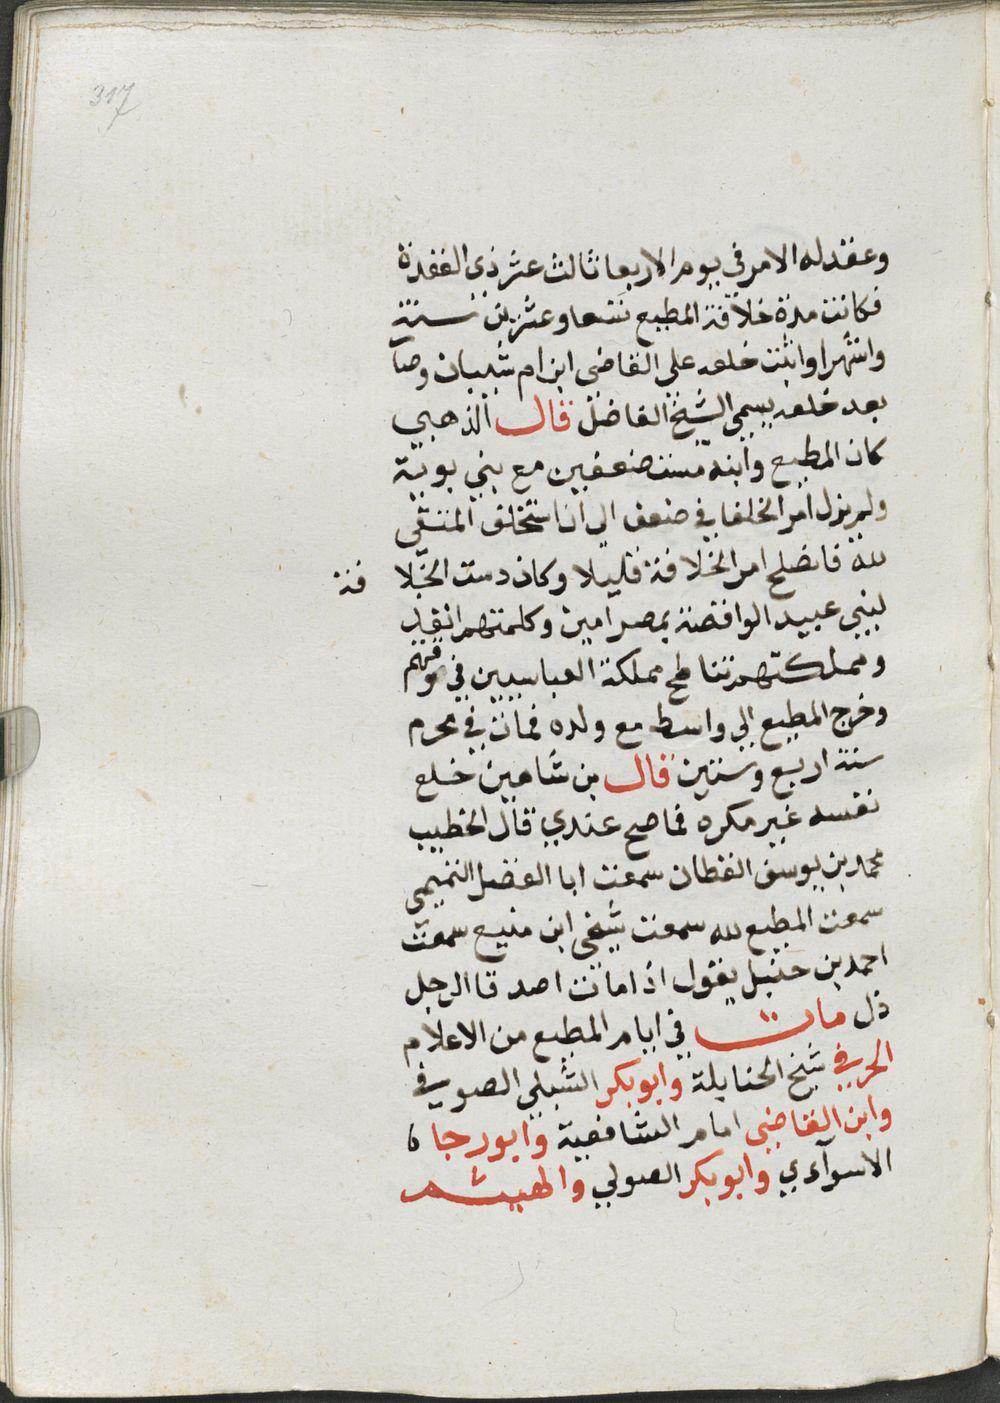 317
وعقد له الامر في يوم الاربعا ثالث عشر ذي القعدة
فكانت مدة خلافة المطيع تسعا وعشرين سنة
واشهرا واثبت خلعه على القاضي ابن ام شيبان وصا
بعد خلعه يسمى الشيخ الفاضل قال الذهبي
كان المطيع وابنه مستضعفين مع بني بوية
ولم يزل امر الخلفا في ضعف الي ان استخلف المتقي
لله فانصلح امر الخلافة قليلا وكان دمت الخلا فة
لبني عبيد الرافضة بمصر امين وكلمتهم انفذ
ومملكتهم تناطح مملكة العباسيين في وقتهم
وخرج المطيع الي واسط مع ولده فمات في محرم
سنة اربع وستين قال بن شاهين خلع
نفسه غير مكره فماصح عندي قال الخطيب
محمد بن يوسف القطان سمعت ابا الفضل التميمي
سمعت المطيع لله سمعت شيخي ابن منيع سمعت
احمد بن حنبل يقول اذا مات اصدقا الرجل
ذل مات في ايام المطيع من الاعلام
الخرفي شيخ الحنابلة وابو بكر الشبلي الصوفي
وابن القاضي امام الشافعية وابو رجاء
الاسوآءدي وابو بكر الصولي والهيثم